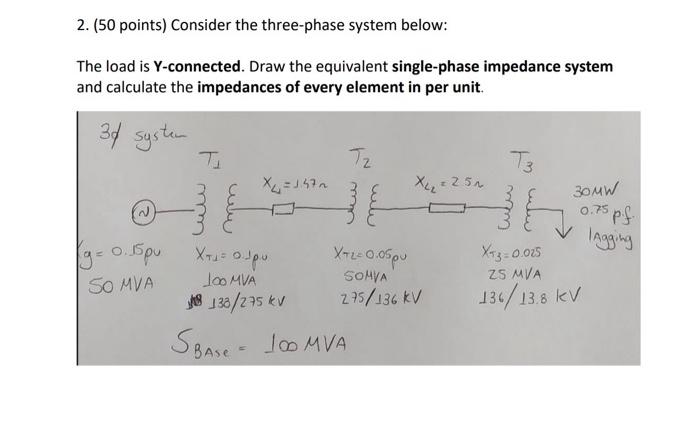 2. (50 points) Consider the three-phase system below:
The load is Y-connected. Draw the equivalent single-phase impedance system
and calculate the impedances of every element in per unit.
3ϕ system
T1 T2 T3
XL1=147Ω XL2=25Ω
30MW
0.75 p.f.
lagging
g= 0.15pu XT1= 0.1pu XT2=0.05pu XT3=0.025
50 MVA 100 MVA 50MVA 25 MVA
138/275 kV 275/136 kV 136/13.8 kV
SBASE = 100 MVA